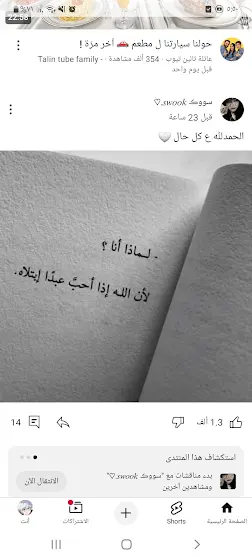 ٥:٥٠
٧١%
22:58
حولنا سيارتنا ل مطعم 🚗 آخر مرة !
عائلة تالين تيوب - Talin tube family · 354 ألف مشاهدة · قبل يوم واحد
سووك 𝓈𝓌𝑜𝑜𝓀.♡
قبل 23 ساعة
الحمدلله ع كل حال 🤍
- لـماذا أنا ؟
لأن اللـه إذا أحبَّ عبدًا إبتلاه.
1.3 ألف
14
استكشاف هذا المنتدى
بدء مناقشات مع "سووك 𝓈𝓌𝑜𝑜𝓀.♡" ومشاهدين آخرين
الانتقال الآن
الصفحة الرئيسية
Shorts
الاشتراكات
أنت